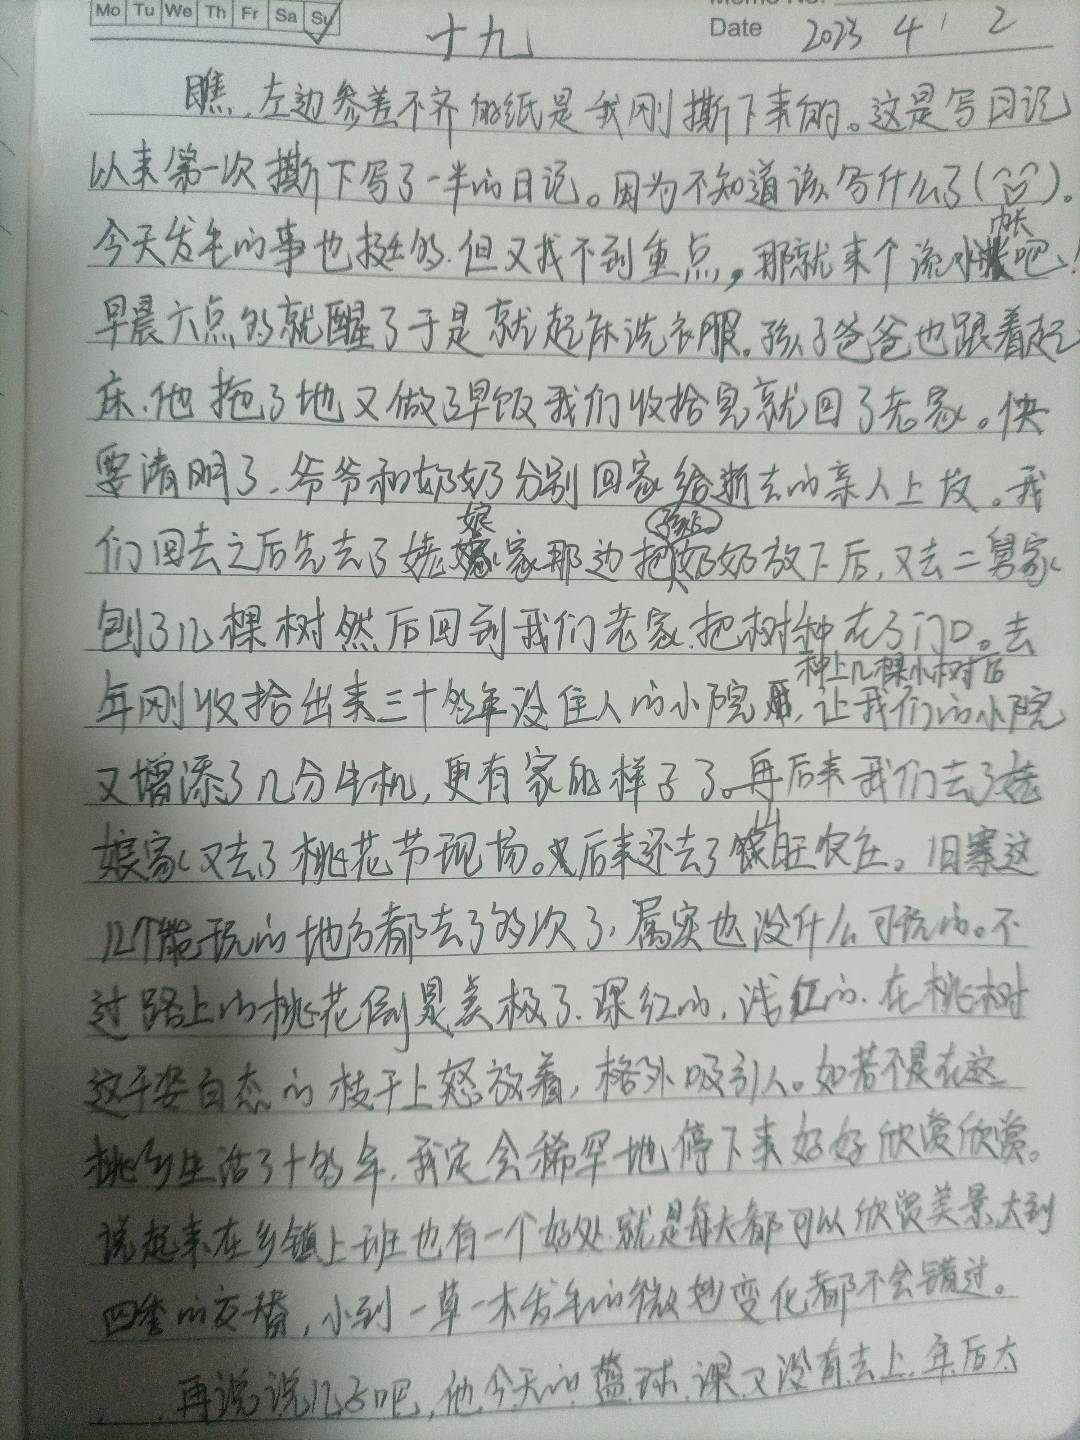 Mo Tu We Th Fr Sa Su
Memo No.
十九 Date 2023 4 2
瞧,左边参差不齐的纸是我刚撕下来的。这是写日记
以来第一次撕下写了一半的日记。因为不知道该写什么了( )。
今天发生的事也挺多,但又找不到重点,那就来个流水帐吧!
早晨六点多就醒了于是就起床洗衣服。孩子爸爸也跟着起
床,他拖了地又做了早饭我们收拾完就回了老家。快
要清明了,爷爷和奶奶分别回家给逝去的亲人上坟。我
们回去之后先去了姥娘家那边把孩子奶奶放下后,又去二舅家
刨了几棵树然后回到我们老家把树种在了门口。去
年刚收拾出来三十多年没住人的小院,种上几棵小树后让我们的小院
又增添了几分生机,更有家的样子了。再后来我们去了姥
娘家又去了桃花节现场。后来还去了旺农庄。旧寨这
几个能玩的地方都去了多次了,属实也没什么可玩的。不
过路上的桃花倒是美极了,深红的,浅红的,在桃树
这千姿百态的枝干上怒放着,格外吸引人。如若不是在这
桃乡生活了十多年,我定会稀罕地停下来好好欣赏欣赏。
说起来在乡镇上班也有一个好处就是每天都可以欣赏美景,大到
四季的交替,小到一草一木发生的微妙变化都不会错过。
再说说儿子吧,他今天的篮球课又没有去上,年后大